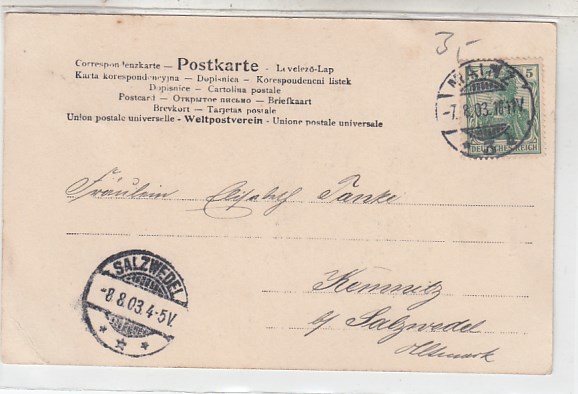 3,-
Correspondenzkarte — Postkarte - Levelező-Lap
Karta korespondencyjna — Dopisnica — Korespoudencni listek
Dopisnice — Cartolina postale
Postcard — Открытое письмо — Briefkaart
Brevkort — Tarjetas postale
Union postale universelle - Weltpostverein - Unione postale universale
5
MAINZ
-7.8.03.
DEUTSCHES REICH
Fräulein Elisabeth Tanke
SALZWEDEL
-8.8.03.4-5V.
* * *
Kemnitz
b/ Salzwedel
Altmark